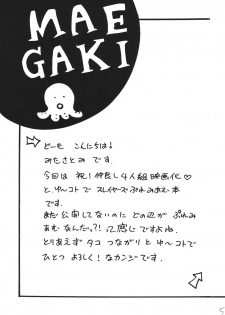 MAE
GAKI
どーも こんにちは!
みたさとみ です。
今回は 祝!仲良し4人組映画化♡
と、ゆーコトで スレイヤーズぷれみあむ本
です。
まだ公開してないのに どの辺が ぷれみ
あむ なんだっ?!って感じですよね。
とりあえず タコ つながり と、ゆーコトで
ひとつ よろしく! なカンジ です。
5